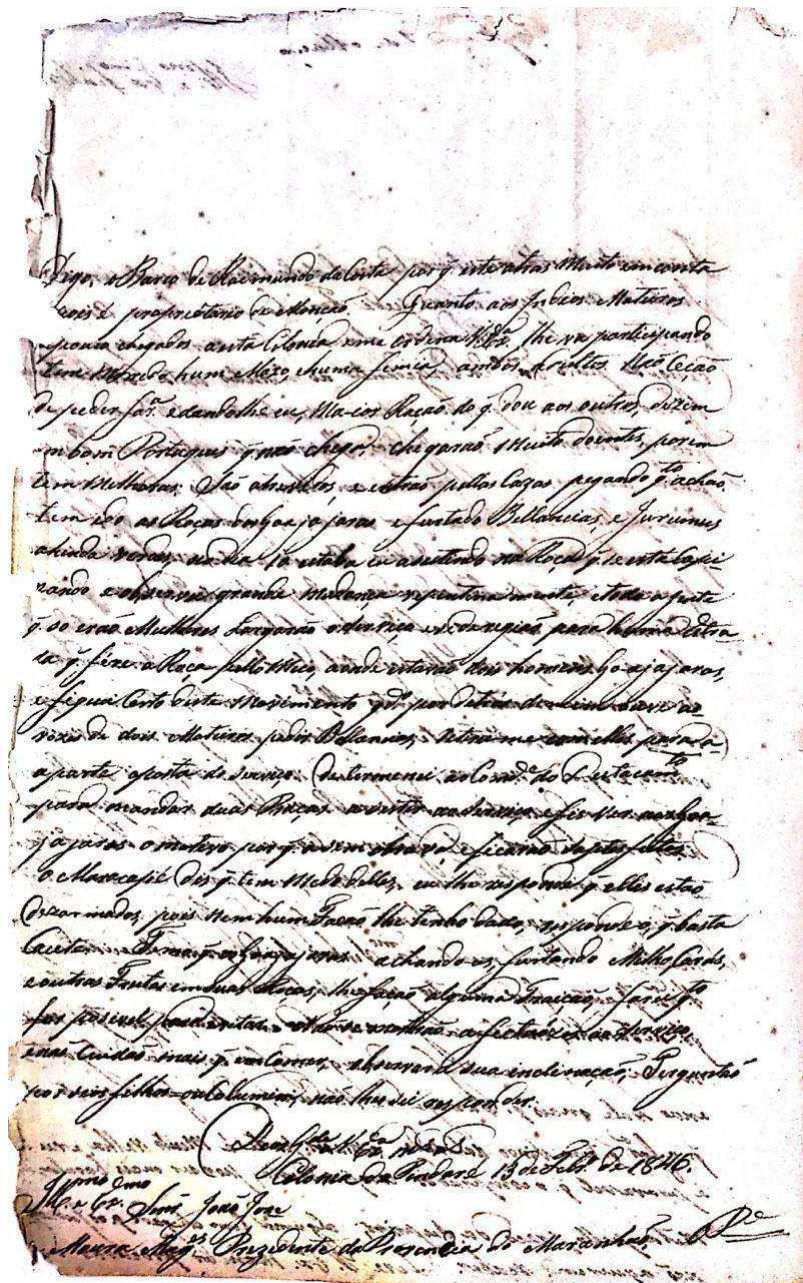 Digo, o Barco de Raimundo da Costa por q. este atras Muito encontra
pois é proprietario de Monção. Quanto aos Indios Mateiros
a pouco chegados a esta Colonia e me ordena V. Exª. lhe va participando
tem Morrido hum Mozo, e huma femia, ambos Adultos Não Ceção
de peder farª. e dandolhe eu, Maior Ração do q. dou aos outros, dizem
em bom Portugues q. não chega, chegarão Muito doentes, porem
tem Melhoras, São atrevidos, e entrão pellas Cazas pegando q.to achão
tem ido as Roças dos Goajajaras e furtado Bellancias, e Jurumus
ahinda verdes, no dia 10 estaba eu asestindo na Roça q. se esta Capi
nando e observei grande mudança repentina mente, e toda a gente
q. so erão Mulheres Largarão o serviço e se para huma
da q. fize a Roça pello Meio, aonde estavão dois homens Goajajaras,
e fiquei Certo deste Movimento q.do por detras de mim ouve as
vozes de dois Mateiros pedir Bellancias, retirei me com elles para a
a parte oposta do serviço. Determenei ao Com.e do Destacam.to
para mandar duas Praças asestir ao serviço, e fis ver aos Goa-
jajaras o motivo por q. a sem obrava, e ficarão satisfeitos
O Maracapé Dis q. tem Medo delles, eu lhe respondi q. elles estão
dezarmados, pois Nem hum Facão lhe tenho dado, respondeo, q. basta
Cacete. Temo q. os Goajajaras achando os, furtando Milho, Carás,
e outras Frutas em suas Rocas, lhe fação alguma Traicão, farei q.to
for posivel para evitar. Não se mostrão afectuosos ao serviço
e nas Cuidão mais q. em Comer, observarei a sua inclinação, Perguntão
por seus filhos ou Columins, não lhes sei responder.
Deos G.de a V. Exª. m.s a.s
Colonia do Pindaré 13 de Febr.º de 1846.
Ill.mo e Ex.mo Senr. João Joze
de Moura Mag.es Prezidente da Provencia do Maranhão.